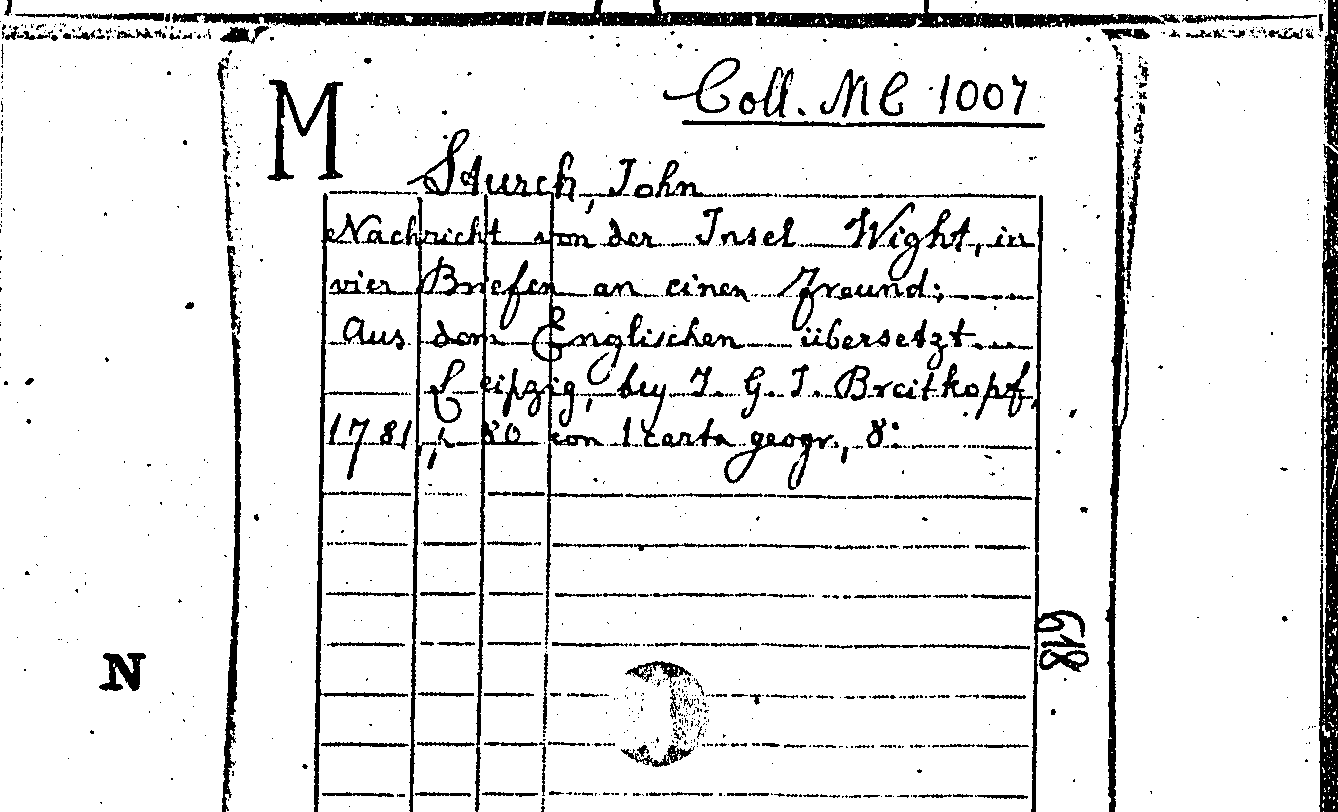 M
Coll. MC 1007
Sturch, John
Nachricht von der Insel Wight, in
vier Briefen an einen Freund;
Aus dem Englischen übersetzt.
Leipzig, bey J. G. I. Breitkopf,
1781, 80 con 1 carta geogr., 8°
618
N